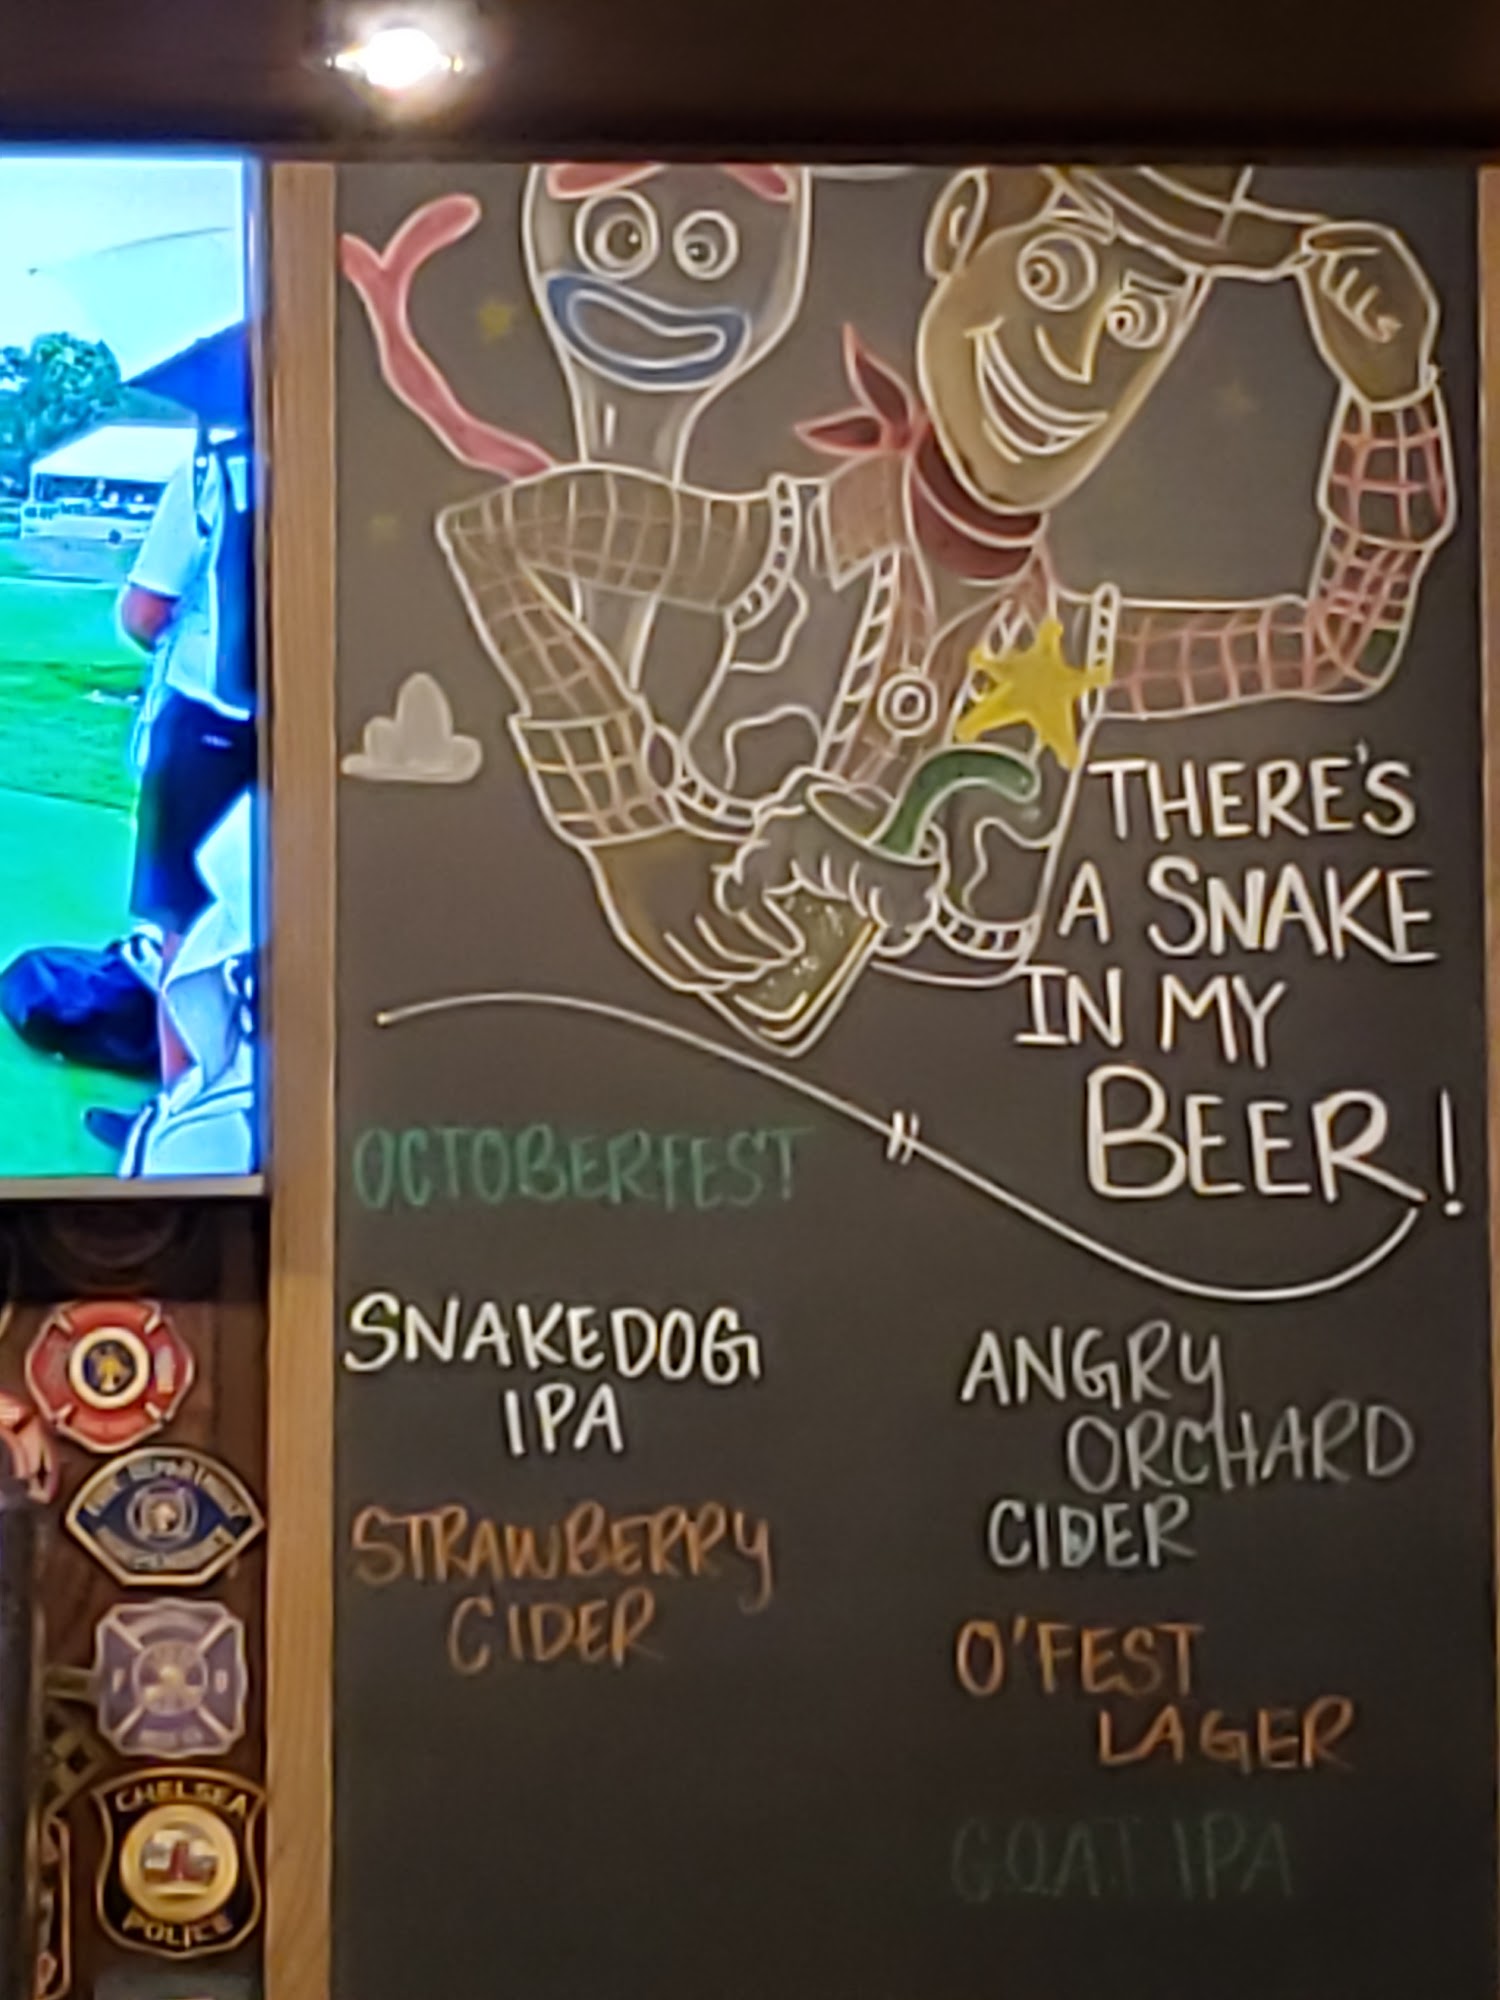 THERE'S
A SNAKE
IN MY
BEER!
OCTOBERFEST
SNAKEDOG
IPA
STRAWBERRY
CIDER
ANGRY
ORCHARD
CIDER
O'FEST
LAGER
GOAT IPA
FIRE DEPARTMENT
CHELSEA
POLICE